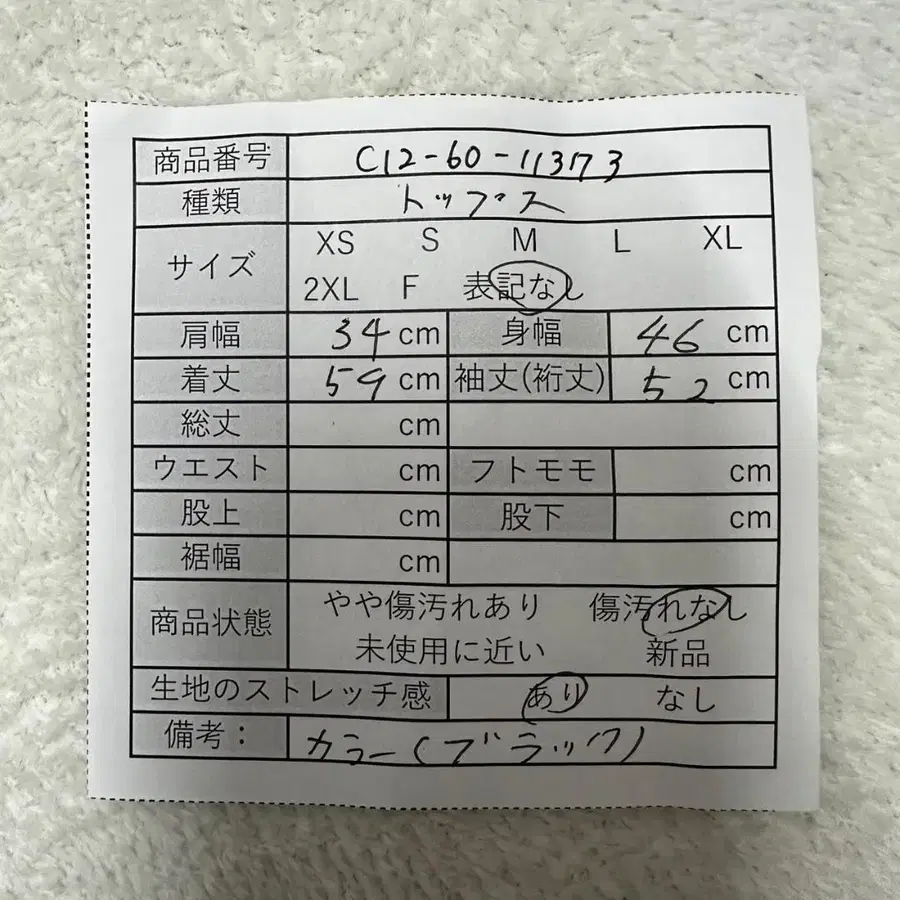 商品番号 C12-60-11373
種類 トップス
サイズ XS S M L XL
2XL F 表記なし
肩幅 34 cm 身幅 46 cm
着丈 59 cm 袖丈(裄丈) 52 cm
総丈 cm
ウエスト cm フトモモ cm
股上 cm 股下 cm
裾幅 cm
商品状態 やや傷汚れあり 傷汚れなし
未使用に近い 新品
生地のストレッチ感 あり なし
備考： カラー(ブラック)